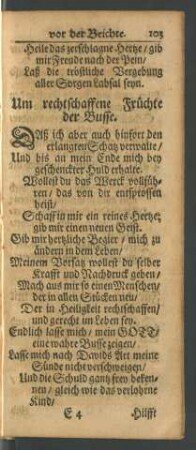 vor der Beichte. 103
Heile das zerschlagne Hertze / gib
mir Freude nach der Pein /
Laß die tröstliche Vergebung
aller Sorgen Labsal seyn.
Um rechtschaffene Früchte
der Busse.
Daß ich aber auch hinfort den
erlangten Schatz verwalte /
Und bis an mein Ende mich bey
geschenckter Huld erhalte.
Wollest du das Werck vollfüh-
ren / das von dir entsprossen
heist /
Schaff in mir ein reines Hertze;
gib mir einen neuen Geist.
Gib mir hertzliche Begier / mich zu
ändern in dem Leben /
Meinem Vorsatz wollest du selber
Krafft und Nachdruck geben /
Mach aus mir so einen Menschen /
der in allen Stücken neu /
Der in Heiligkeit rechtschaffen /
und gerecht im Leben sey.
Endlich lasse mich / mein GOTT /
eine wahre Busse zeigen /
Lasse mich nach Davids Art meine
Sünde nicht verschweigen /
Und die Schuld gantz frey beken-
nen / gleich wie das verlohrne
Kind /
E 4 Hilfft